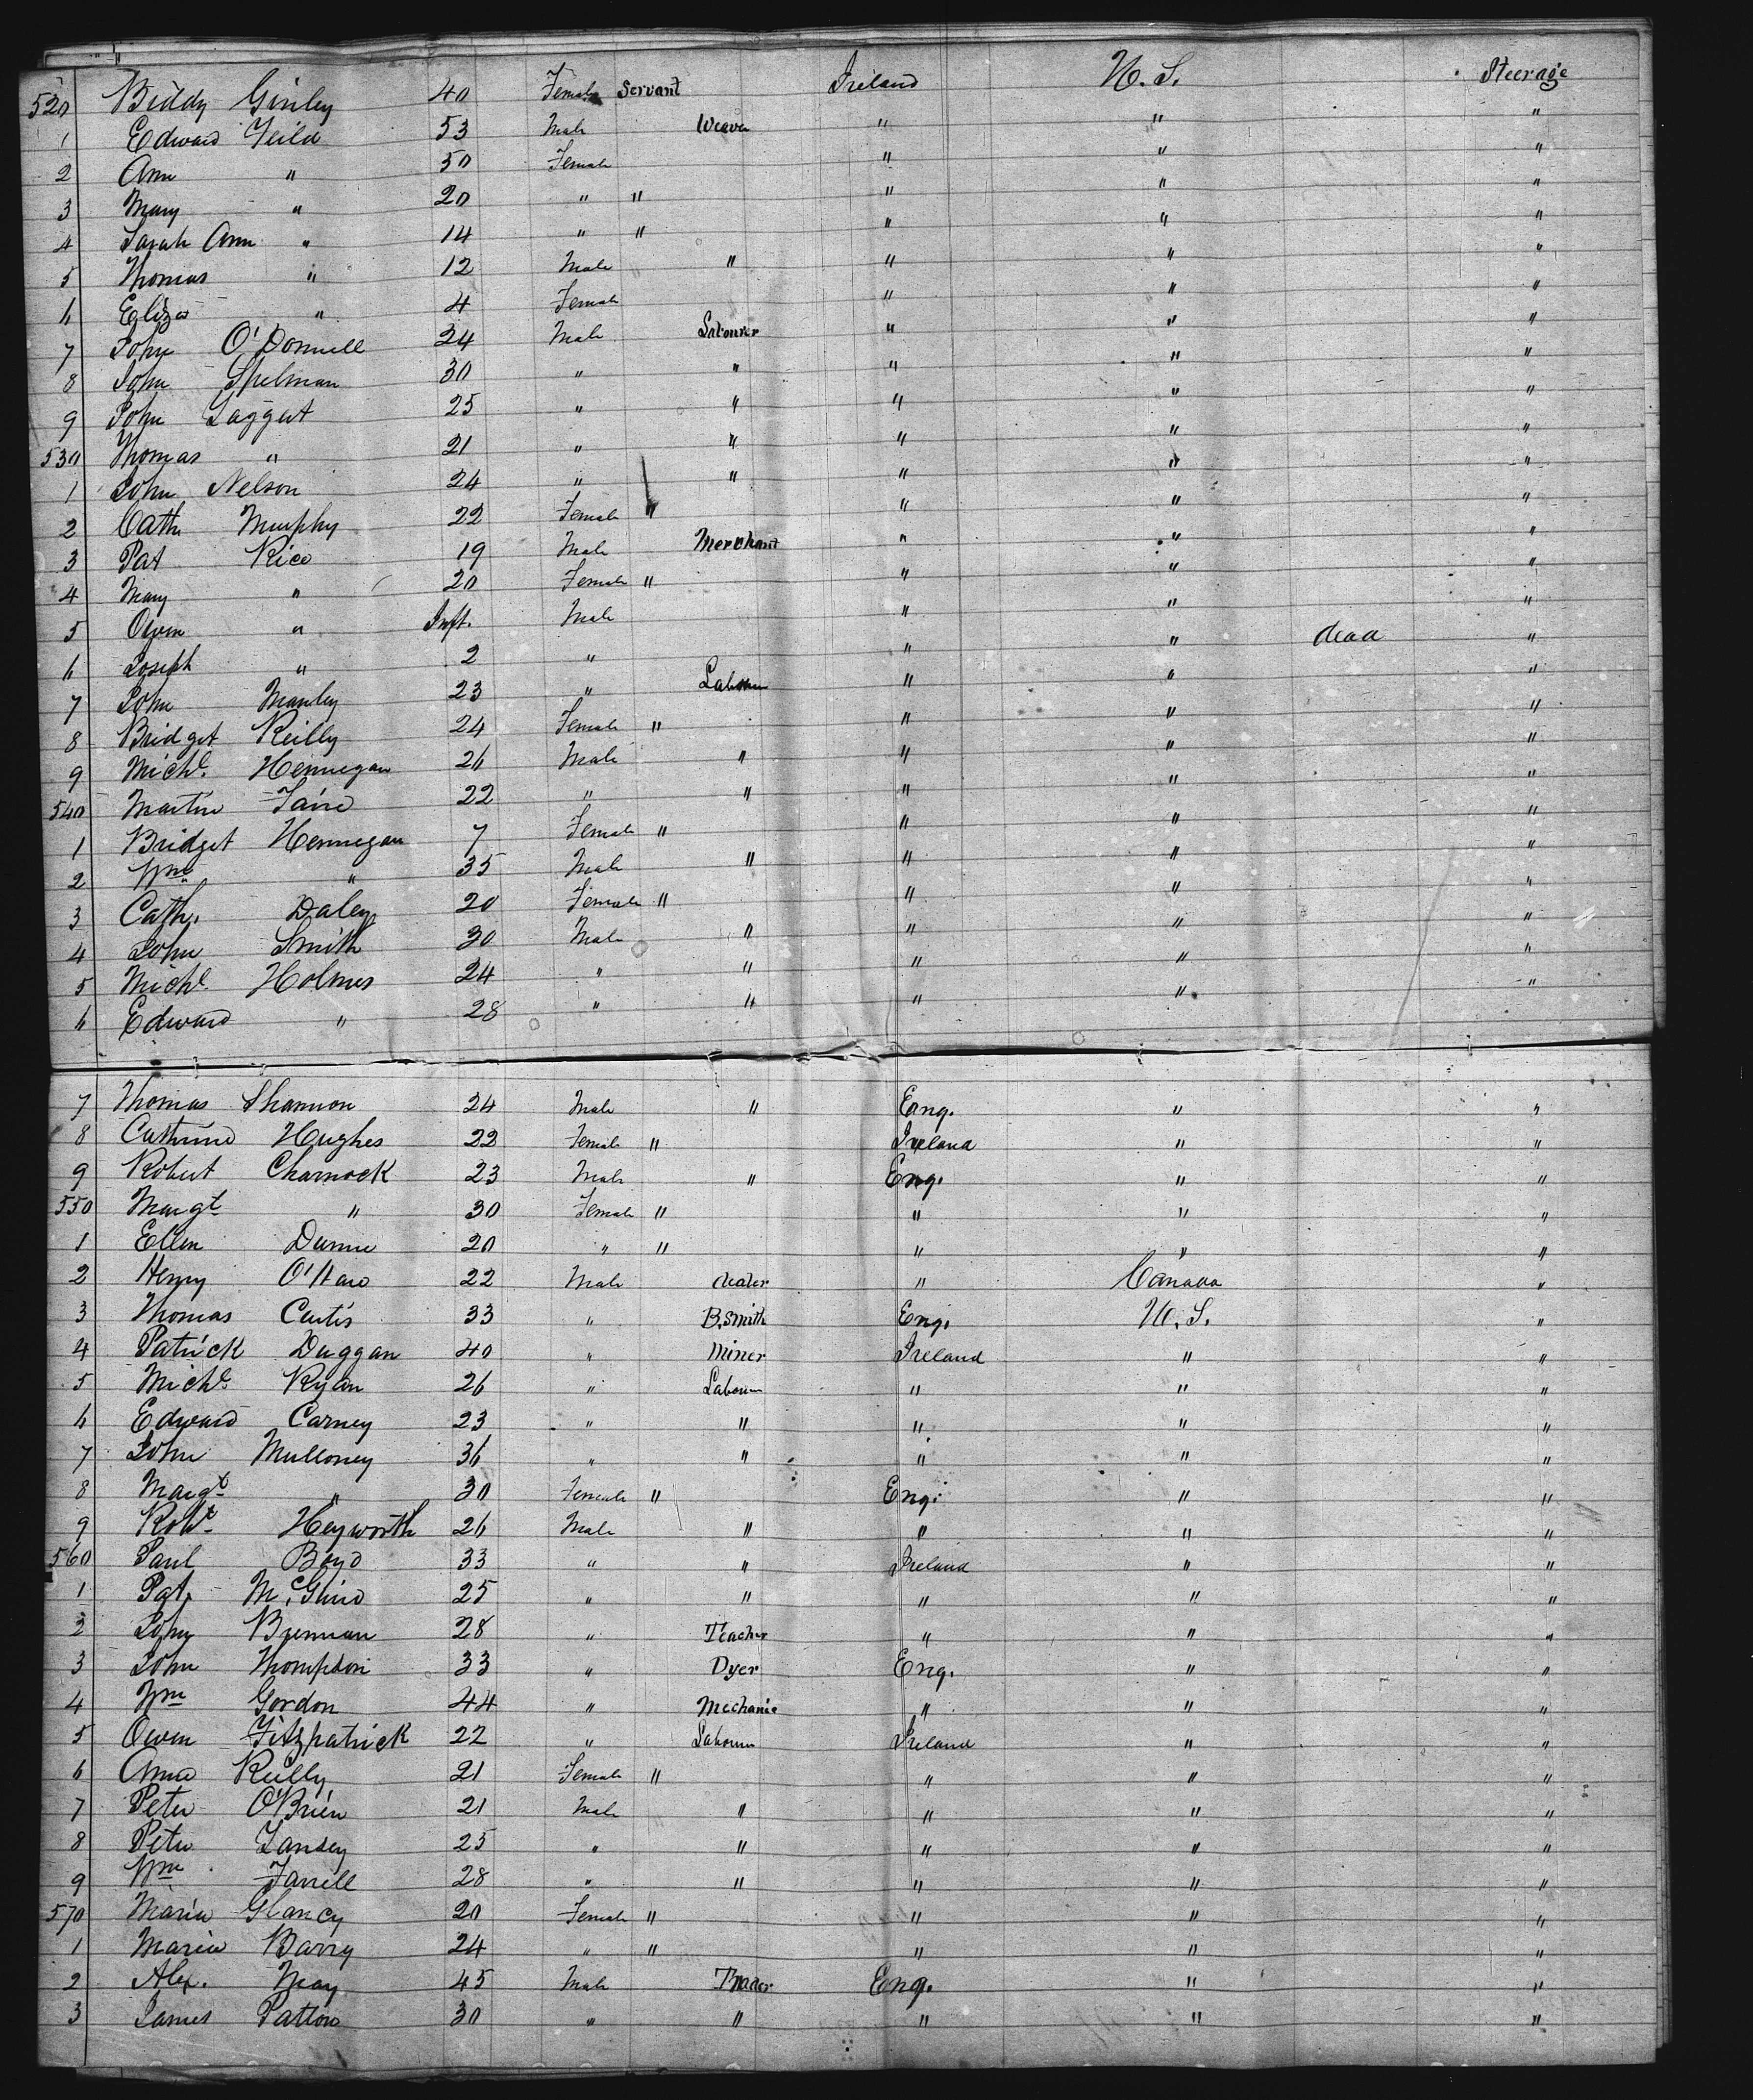 520 Biddy Ginley 40 Female Servant Ireland U.S. Steerage
1 Edward Feild 53 Male Weaver " " "
2 Ann " 50 Female " " "
3 Mary " 20 " " " " "
4 Sarah Ann " 14 " " " " "
5 Thomas " 12 Male " " " "
6 Eliza " 4 Female " " "
7 John O'Donnell 24 Male Labourer " " "
8 John Spelman 30 " " " " "
9 John Taggert 25 " " " " "
530 Thomas " 21 " " " " "
1 John Nelson 24 " " " " "
2 Cath Murphy 22 Female " " " "
3 Pat Rice 19 Male Merchant " " "
4 Mary " 20 Female " " " "
5 Owen " Inft. Male " " "
6 Joseph " 2 " " " dead "
7 John Manley 23 " Labourer " " "
8 Bridget Reilly 24 Female " " " "
9 Michl. Hennegan 26 Male " " " "
540 Martin 22 " " " " "
1 Bridget Hennegan 7 Female " " " "
2 Wm " 35 Male " " " "
3 Cath. Daley 20 Female " " " "
4 John Smith 30 Male " " " "
5 Michl. Holmes 24 " " " " "
6 Edward " 28 " " " " "
7 Thomas Shannon 24 Male " Eng. " "
8 Cathrine Hughes 22 Female " Ireland " "
9 Robert Charnock 23 Male " Eng. " "
550 Margt " 30 Female " " " "
1 Ellen Dunne 20 " " " " "
2 Henry O'Hara 22 Male dealer " Canada "
3 Thomas Curtis 33 " B.Smith Eng. U.S. "
4 Patrick Duggan 40 " Miner Ireland " "
5 Michl. Rylan 26 " Labourer " " "
6 Edward Carney 23 " " " " "
7 John Mulloney 36 " " " " "
8 Margt " 30 Female " Eng. " "
9 Robt Heyworth 26 Male " " " "
560 Paul Boyd 33 " " Ireland " "
1 Pat. 25 " " " " "
2 John Brennan 28 " Teacher " " "
3 John Thompson 33 " Dyer Eng. " "
4 Wm Gordon 44 " Mechanic " " "
5 Owen Fitzpatrick 22 " Labourer Ireland " "
6 Anna Reilly 21 Female " " " "
7 Peter O'Brien 21 Male " " " "
8 Peter 25 " " " " "
9 Wm Farrell 28 " " " " "
570 Maria Glancy 20 Female " " " "
1 Maria Barry 24 " " " " "
2 Alex. May 45 Male Trader Eng. " "
3 James Patton 30 " " " " "